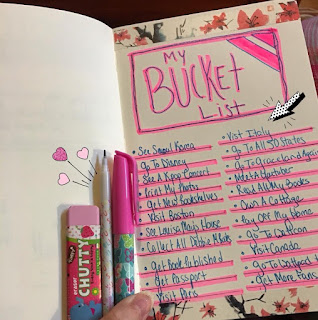 MY
BUCKET
LIST
• See Seoul Korea
• Go To Disney
• See A Kpop Concert
• My Photo
• Get New Bookshelves
• Visit Boston
• See Louisa Mays House
• Collect All Debbie
• Get Book Published
• Get Passport
• Visit Paris
• Visit Italy
• Go To All 50 States
• Go To Graceland Again
• Meet A Youtuber
• Read All My Books
• Own A Cottage
• Pay Off My Home
• Go To
• Visit Canada
• Go To
• Get More Fans
ERASER
CHUTTY